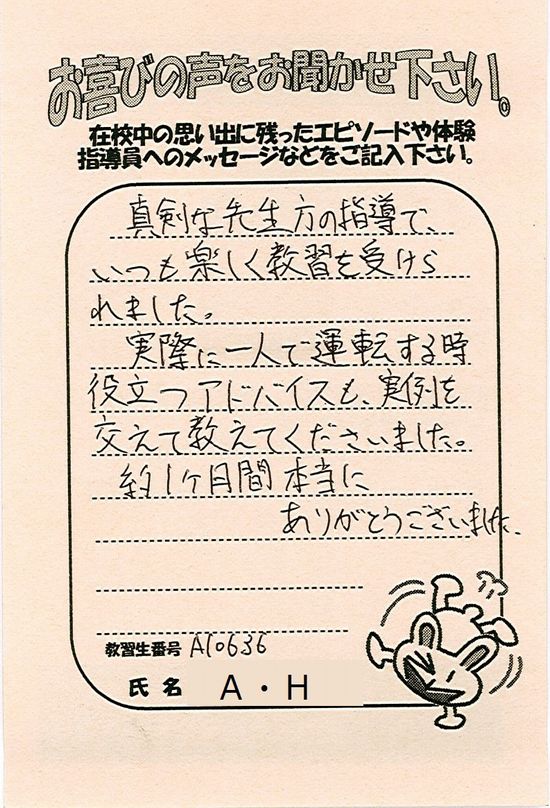 お喜びの声をお聞かせ下さい。
在校中の思い出に残ったエピソードや体験
指導員へのメッセージなどをご記入下さい。
真剣な先生方の指導で、
いつも楽しく教習を受けら
れました。
実際に一人で運転する時
役立つアドバイスも、実例を
交えて教えてくださいました。
約1ヶ月間本当に
ありがとうございました。
教習生番号 A10636
氏名 A・H